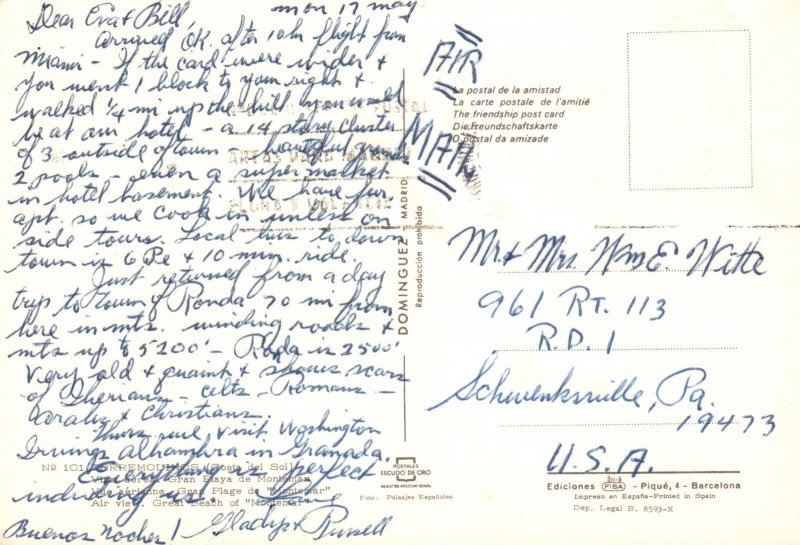 Mon 17 May
Dear Eva & Bill,
Arrived O.K. after 10 hr flight from
Miami - If the card were wider &
you went 1 block to your right &
walked 1/4 mi up the hill you would
be at our hotel - a 14 story cluster
of 3 outside of town - beautiful
2 pools - even a supermarket
in hotel basement. We have fur.
apt. so we cook in unless on
side tours. Local bus to down
town is 6 Pe & 10 min. ride.
Just returned from a day
trip to town of Ronda 70 mi from
here in mts. winding roads &
mts up to 5200' - Ronda is 2500'
very old & quaint & shows scars
of Iberians - Celts - Romans -
Arabs & Christians.
Thurs we visit Washington
Irvings Alhambra in Granada.
Everything is perfect
including us. Love
Buenos Noches! Gladys & Russell
AIR
MAIL
La postal de la amistad
La carte postale de l'amitié
The friendship post card
Die Freundschaftskarte
O postal da amizade
DOMINGUEZ MADRID
Reproducción prohibida
Mr & Mrs Wm E. Witte
961 RT. 113
R.D. 1
Schwenksville, Pa.
19473
U.S.A.
Nº 101 TORREMOLINOS (Costa del Sol)
Vista aérea. Gran Playa de Montemar
Vue aérienne. Gran Plage de "Montemar"
Air view. Great Beach of "Montemar"
POSTALES
ESCUDO DE ORO
REGISTRO INTERNACIONAL
Foto: Paisajes Españoles
Ediciones FISA - Piqué, 4 - Barcelona
Impreso en España-Printed in Spain
Dep. Legal B. 8593-X